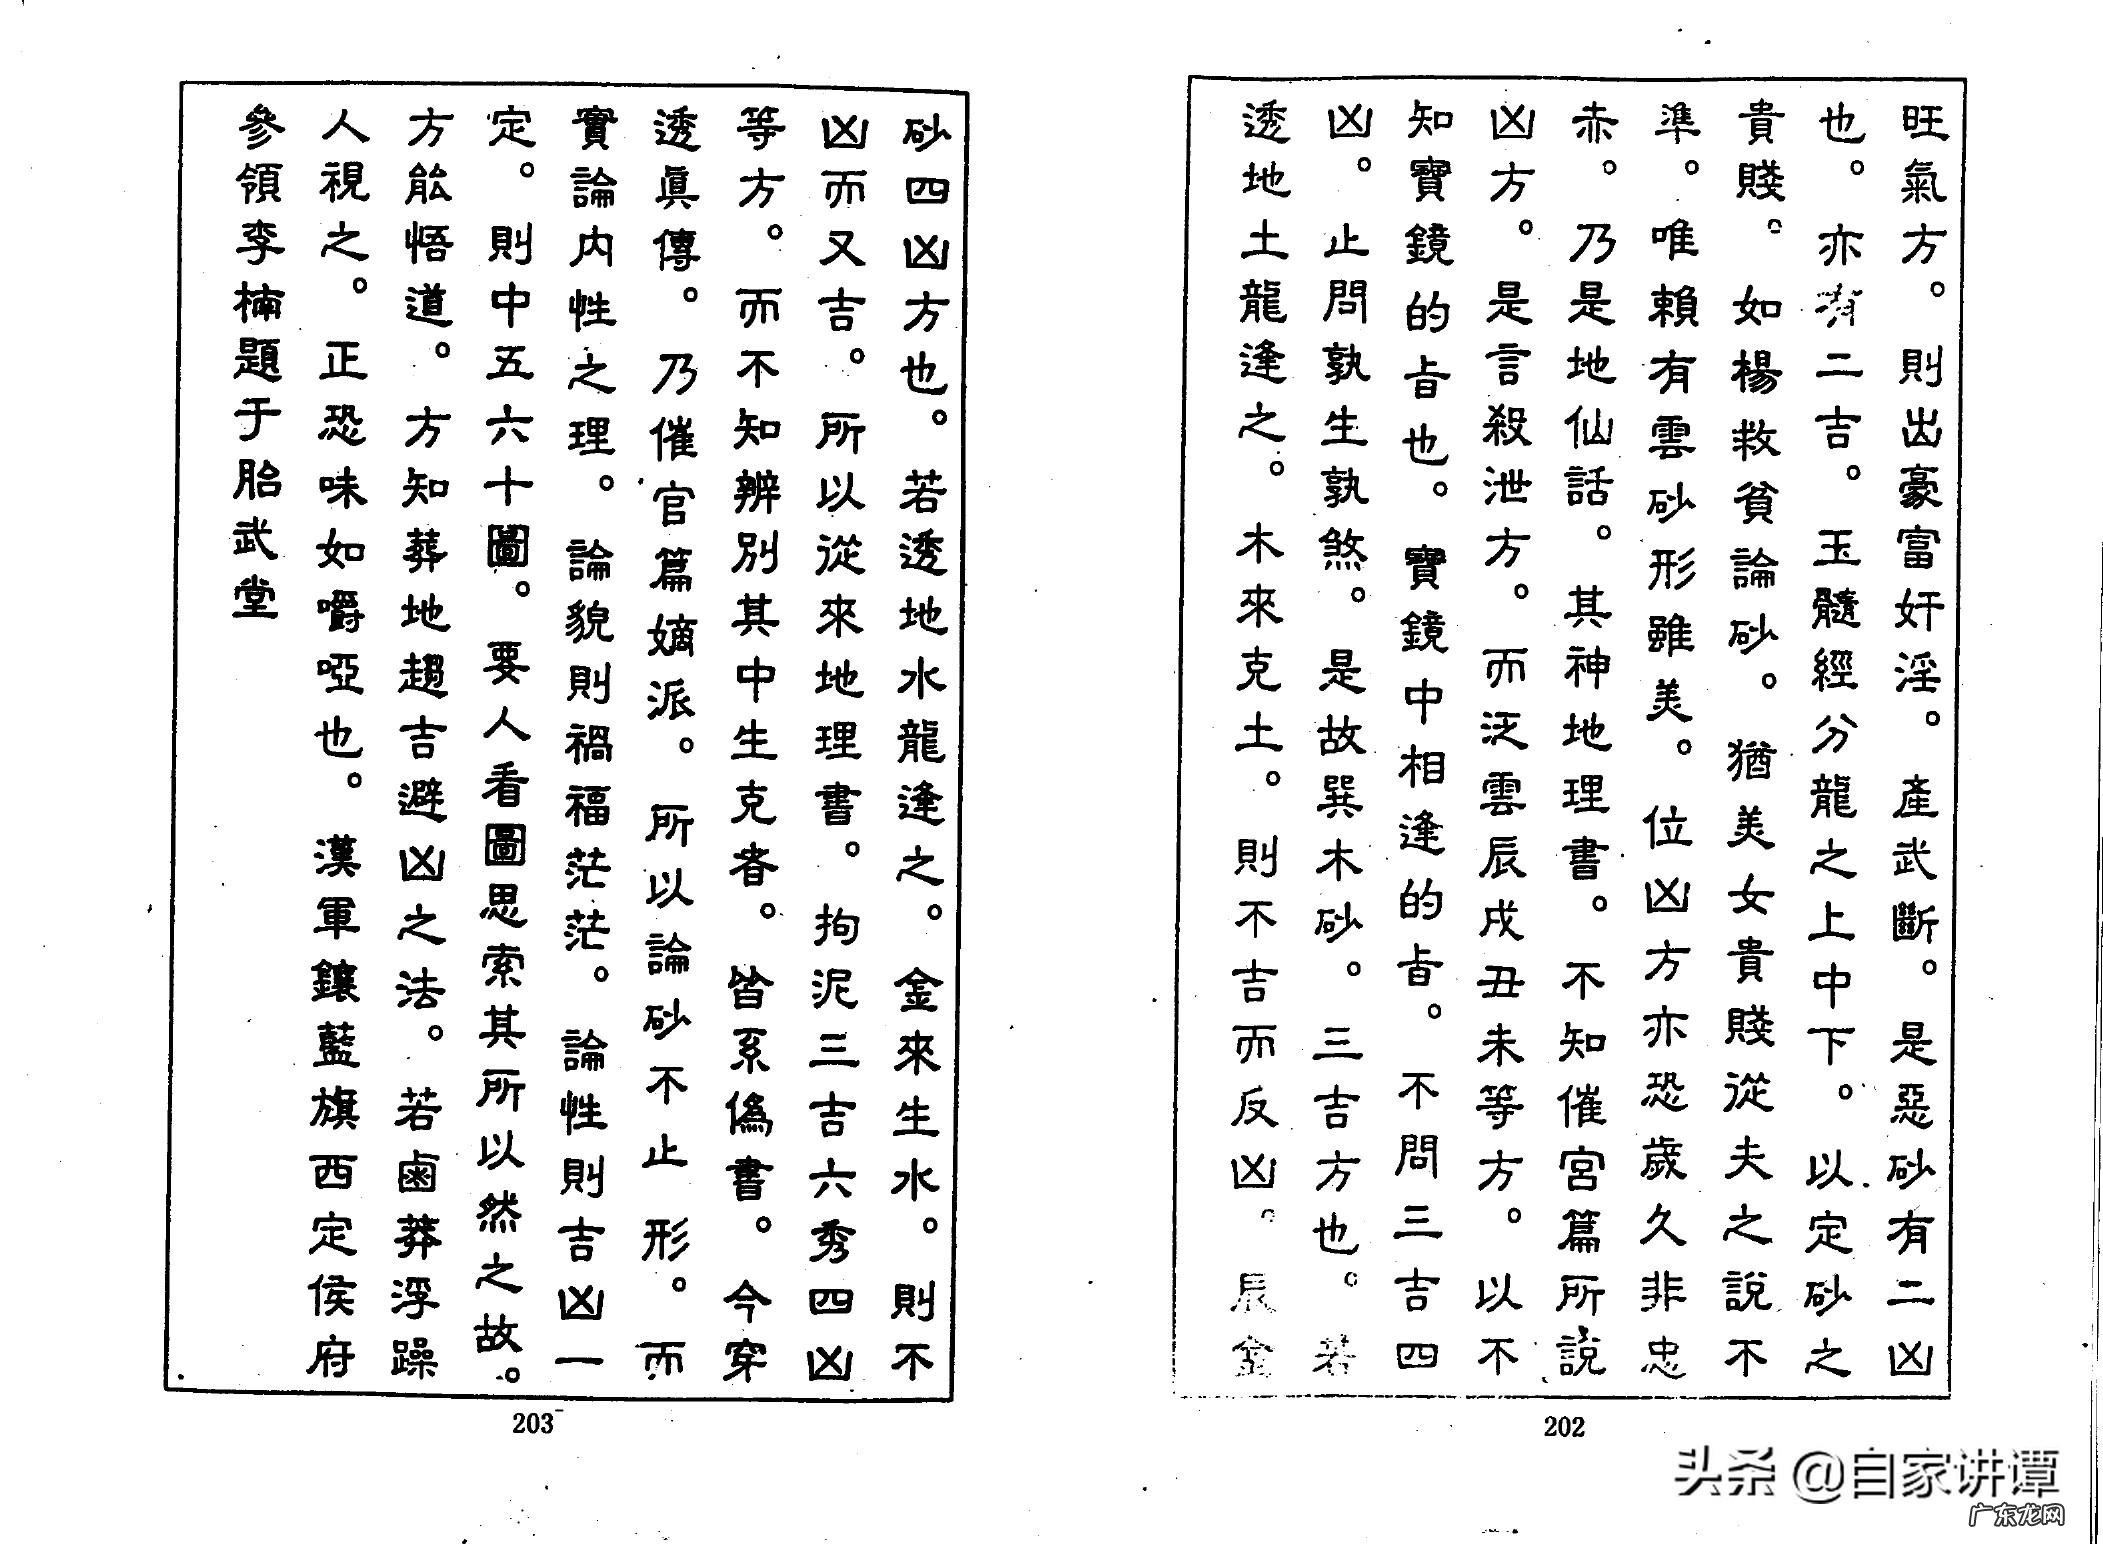 旺氣方。則出豪富奸淫。產武斷。是惡砂有二凶
也。亦有二吉。玉髓經分龍之上中下。以定砂之
貴賤。如楊救貧論砂。猶美女貴賤從夫之說不
準。唯賴有雲砂形雖美。位凶方亦恐歲久非忠
赤。乃是地仙話。其神地理書。不知催宮篇所說
凶方。是言殺泄方。而泛雲辰戌丑未等方。以不
知寶鏡的旨也。寶鏡中相逢的旨。不問三吉四
凶。止問孰生孰煞。是故巽木砂。三吉方也。若
透地土龍逢之。木來克土。則不吉而反凶。辰金
202
砂四凶方也。若透地水龍逢之。金來生水。則不
凶而又吉。所以從來地理書。拘泥三吉六秀四凶
等方。而不知辨別其中生克者。皆系偽書。今穿
透眞傳。乃催官篇嫡派。所以論砂不止形。而
實論內性之理。論貌則禍福茫茫。論性則吉凶一
定。則中五六十圖。要人看圖思索其所以然之故。
方能悟道。方知葬地趨吉避凶之法。若鹵莽浮躁
人視之。正恐味如嚼啞也。漢軍鑲藍旗西定侯府
參領李楠題于胎武堂
203
头条 @自家讲谭
广东龙网